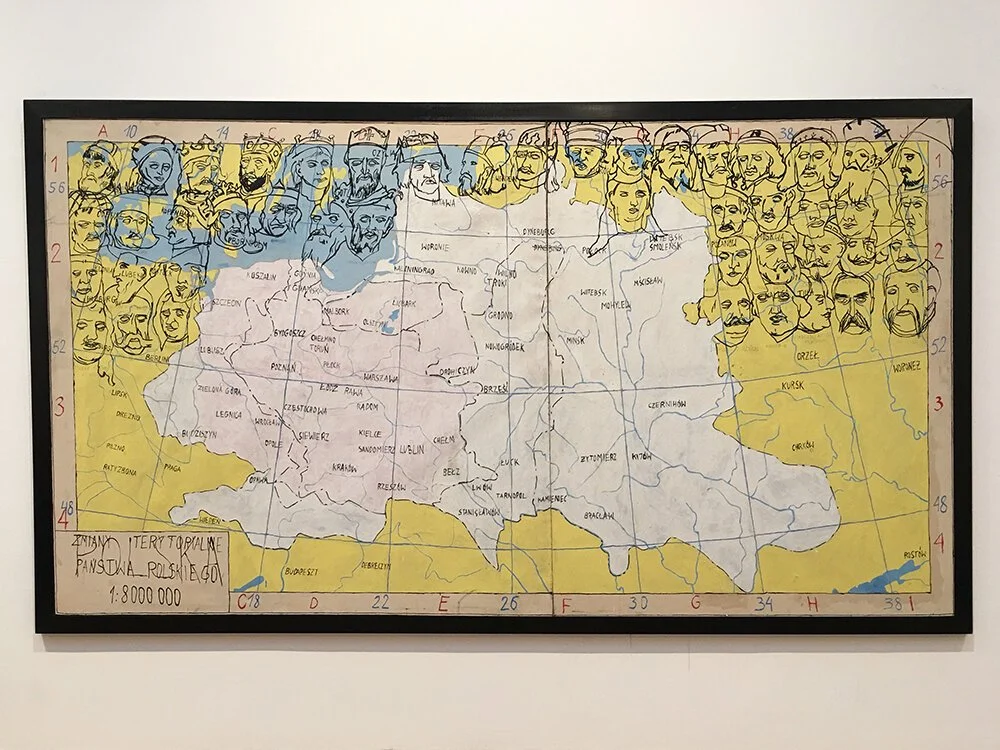 A 10 14 C 18 22 E 26 30 G 34 H 38 I
1 1
56 56
MITAWA
DYNEBURG
WORONIE DYNEBURG POŁOCK WITEBSK
SMOLEŃSK
2 2
KOSZALIN GDYNIA KALININGRAD KOWNO WILNO
GDAŃSK TROKI WITEBSK MŚCISŁAW
SZCZECIN MALBORK LIDZBARK MOHYLEW
OLSZTYN GRODNO
BYDGOSZCZ CHEŁMNO MIŃSK
TORUŃ NOWOGRÓDEK
52 BERLIN LUBUSZ ORZEŁ 52
POZNAŃ PŁOCK WARSZAWA DROHICZYN WORONEŻ
LIPSK ZIELONA GÓRA ŁÓDŹ RAWA BRZEŚĆ KURSK
3 LEGNICA CZĘSTOCHOWA RADOM CZERNIHÓW 3
DREZNO WROCŁAW
BUDZISZYN OPOLE SIEWIERZ KIELCE CHEŁM
PILZNO SANDOMIERZ LUBLIN CHARKÓW
RATYZBONA PRAGA KRAKÓW BEŁZ ŁUCK ŻYTOMIERZ KIJÓW
OPAWA RZESZÓW LWÓW
TARNOPOL KAMIENIEC
48 WIEDEŃ STANISŁAWÓW BRACŁAW 48
4 4
ZMIANY TERYTORIALNE
PAŃSTWA POLSKIEGO
1:8000 000
BUDAPESZT DEBRECZYN ROSTÓW
C 18 D 22 E 26 F 30 G 34 H 38 I